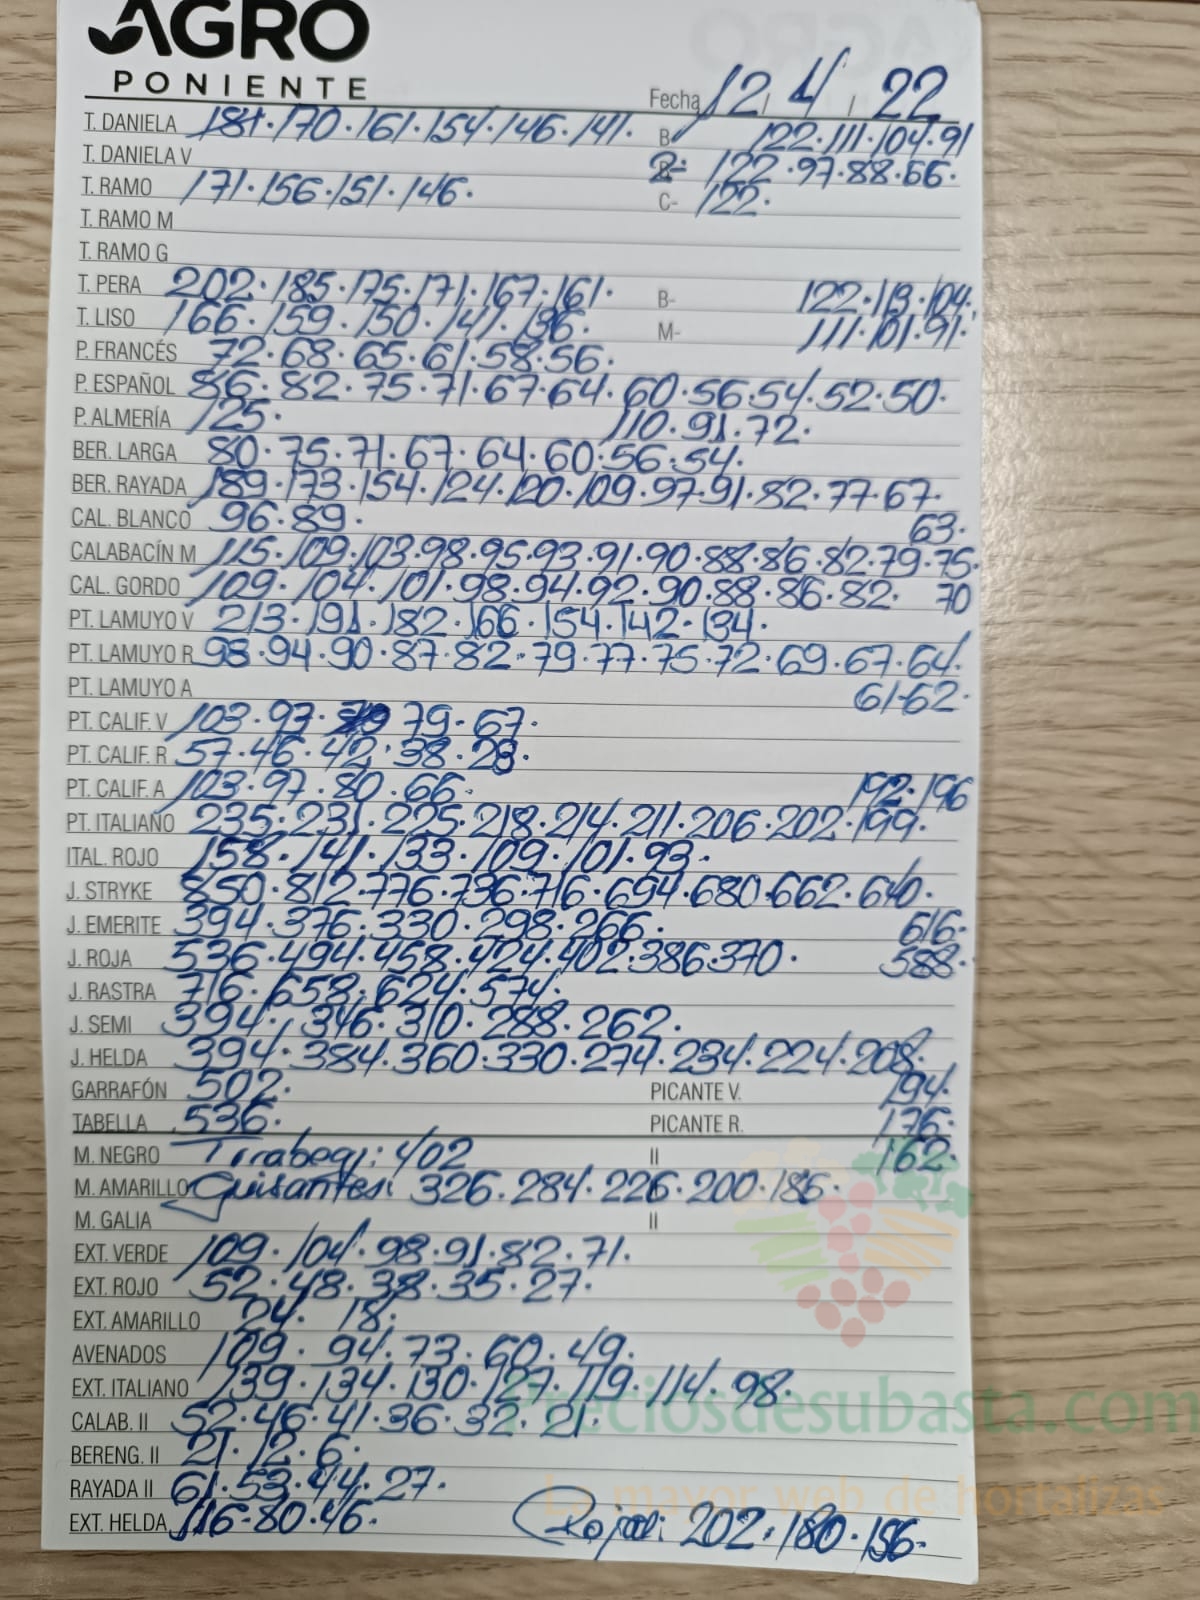 AGRO
PONIENTE
Fecha 12 / 4 / 22
T. DANIELA 181·170·161·154·146·141· B- 122·111·104·91
T. DANIELA V 2= 122·97·88·66·
T. RAMO 171·156·151·146· C- 122·
T. RAMO M
T. RAMO G
T. PERA 202·185·175·171·167·161· B- 122·113·104·
T. LISO 166·159·150·141·136· M- 111·101·91·
P. FRANCÉS 72·68·65·61·58·56·
P. ESPAÑOL 86·82·75·71·67·64·60·56·54·52·50·
P. ALMERÍA 125· 110·91·72·
BER. LARGA 80·75·71·67·64·60·56·54·
BER. RAYADA 189·173·154·124·120·109·97·91·82·77·67·
CAL. BLANCO 96·89· 63·
CALABACÍN M 115·109·103·98·95·93·91·90·88·86·82·79·75·
CAL. GORDO 109·104·101·98·94·92·90·88·86·82· 70
PT. LAMUYO V 213·191·182·166·154·142·134·
PT. LAMUYO R 98·94·90·87·82·79·77·75·72·69·67·64·
PT. LAMUYO A 61·62·
PT. CALIF. V 103·97· 79·67·
PT. CALIF. R 57·46·42·38·28·
PT. CALIF. A 103·97·80·66· 192·196
PT. ITALIANO 235·231·225·218·214·211·206·202·199·
ITAL. ROJO 158·141·133·109·101·93·
J. STRYKE 850·812·776·736·716·694·680·662·640·
J. EMERITE 394·376·330·298·266· 616·
J. ROJA 536·494·458·424·402·386·370· 588·
J. RASTRA 716·658·624·574·
J. SEMI 394·346·310·288·262·
J. HELDA 394·384·360·330·274·234·224·208·
GARRAFÓN 502· PICANTE V. 194·
TABELLA 536· PICANTE R. 176·
M. NEGRO Tirabeqs: 402 II 162·
M. AMARILLO Guisantes: 326·284·226·200·186·
M. GALIA II
EXT. VERDE 109·104·98·91·82·71·
EXT. ROJO 52·48·38·35·27·
EXT. AMARILLO 24· 18·
AVENADOS 109·94·73·60·49·
EXT. ITALIANO 139·134·130·127·119·114·98·
Preciosdesubasta.com
CALAB. II 52·46·41·36·32·21·
BERENG. II 21·12·6·
RAYADA II 61·53·44·27·
La mayor web de hortalizas
EXT. HELDA 116·80·46· Roja: 202·180·156·